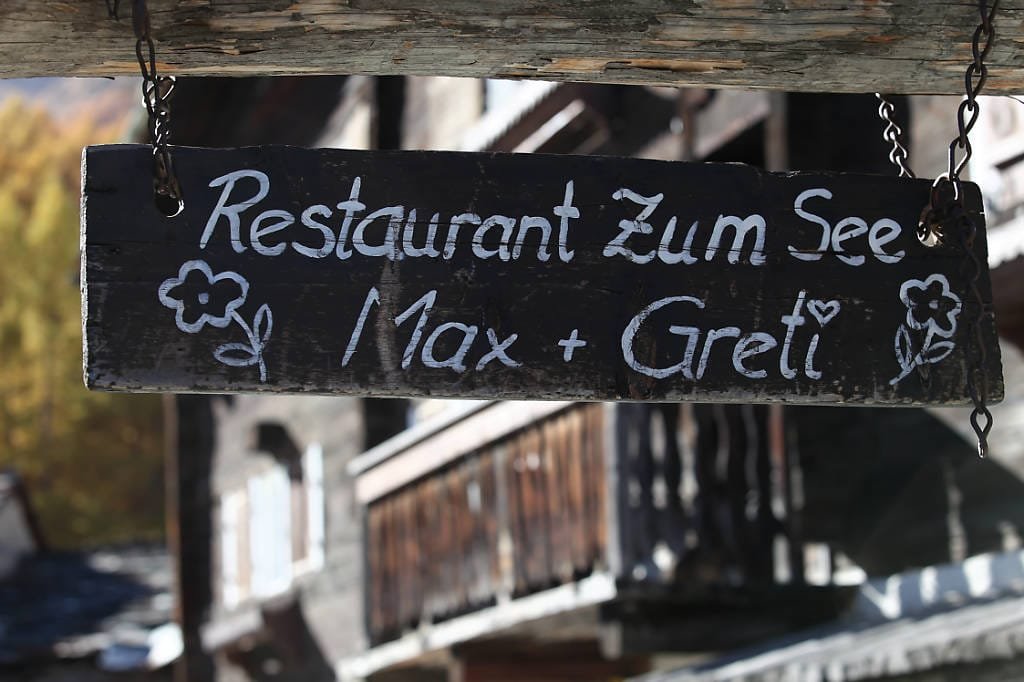 Restaurant Zum See
Max + Greti